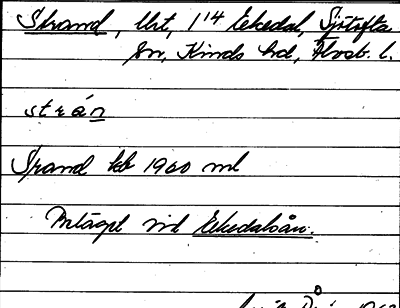 Strand, lht, 1/4 Ekedal, Sjötofta
sn, Kinds hd, Älvsb. l.
strán
Strand kb 1960 ml
Beläget vid Ekedalsån.